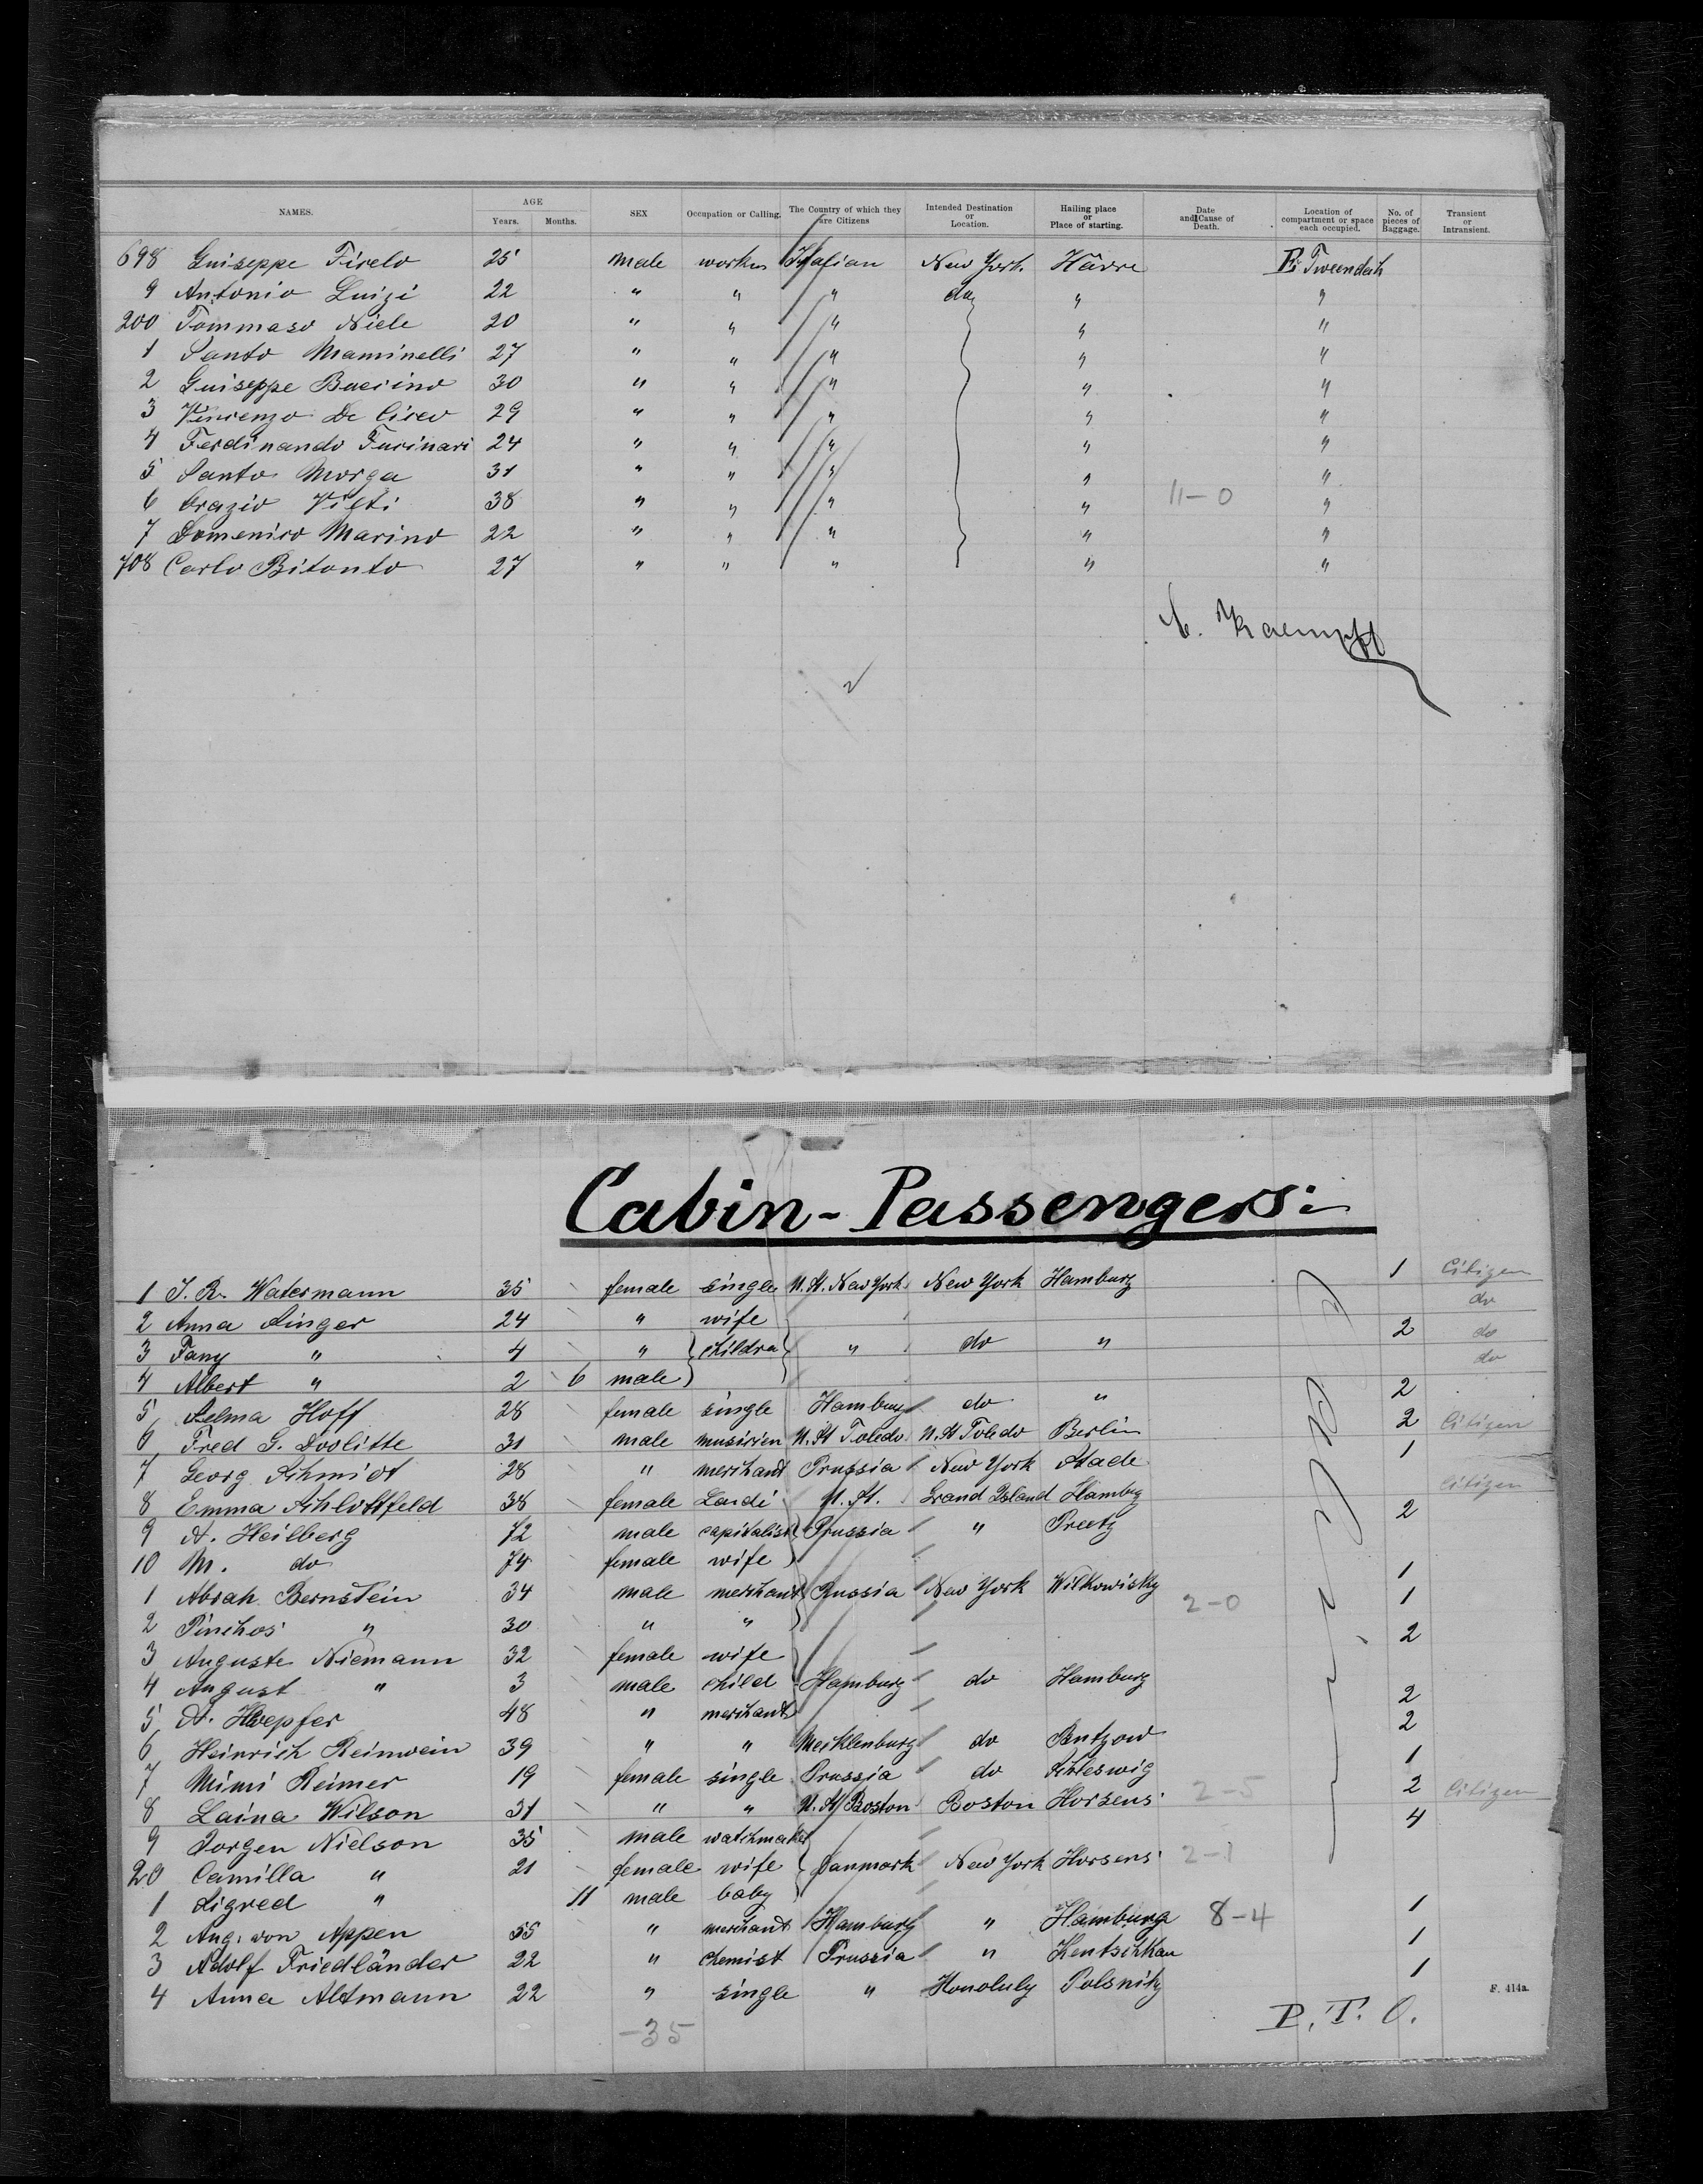 NAMES. AGE Years. Months. SEX Occupation or Calling. The Country of which they are Citizens Intended Destination or Location. Hailing place or Place of starting. Date and Cause of Death. Location of compartment or space each occupied. No. of pieces of Baggage. Transient or Intransient.
698 Guiseppe Firelo 25 male worker Italian New York Hâvre E. Tweendeck
9 Antonio Luizi 22 " " " do " "
200 Tommaso Niele 20 " " " " "
1 Santo Maminelli 27 " " " " "
2 Guiseppe Bucino 30 " " " " "
3 Vincenzo De Circo 29 " " " " "
4 Ferdinando Furinari 24 " " " " "
5 Santo Morga 31 " " " " "
6 Orazio Vilti 38 " " " " 11-0 "
7 Domenico Marino 22 " " " " "
708 Carlo Bitonto 27 " " " " "
C. Kaempff
Cabin-Passengers:
1 J. R. Watermann 35 female single U. St. New York New York Hamburg 1 Citizen
2 Anna Singer 24 " wife do
3 Fany " 4 " children " do " 2 do
4 Albert " 2 6 male do
5 Selma Hoff 28 female single Hamburg do " 2
6 Fred G. Doolitte 31 male musicien U. St Toledo U. St Toledo Berlin 2 Citizen
7 Georg Schmidt 28 " merchant Prussia New York Stade 1
8 Emma Schlottfeld 38 female Ladi U. St. Grand Island Hambg Citizen
9 A. Heilberg 72 male capitalist Prussia " Preetz 2
10 M. do 74 female wife
1 Abrah. Bernstein 34 male merchant Russia New York Wilkowisky 2-0 1
2 Pinchos " 30 " " 1
3 Auguste Niemann 32 female wife 2
4 August " 3 male child Hamburg do Hamburg
5 A. Hoepfer 48 " merchant 2
6 Heinrich Reinwein 39 " " Mecklenburg do Bentzow 2
7 Mimi Reimer 19 female single Prussia do Schleswig 1
8 Laina Wilson 31 " " U. St/Boston Boston Horsens 2-5 2 Citizen
9 Jorgen Nielson 35 male watchmaker 4
20 Camilla " 21 female wife Danmark New York Horsens 2-1
1 Sigred " 11 male baby
2 Aug. von Appen 55 " merchant Hamburg " Hamburg 8-4 1
3 Adolf Friedländer 22 " chemist Prussia " Kentschkau 1
4 Anna Altmann 22 " single " Honoluly Polsnitz 1
F. 414a.
-35 P. T. O.